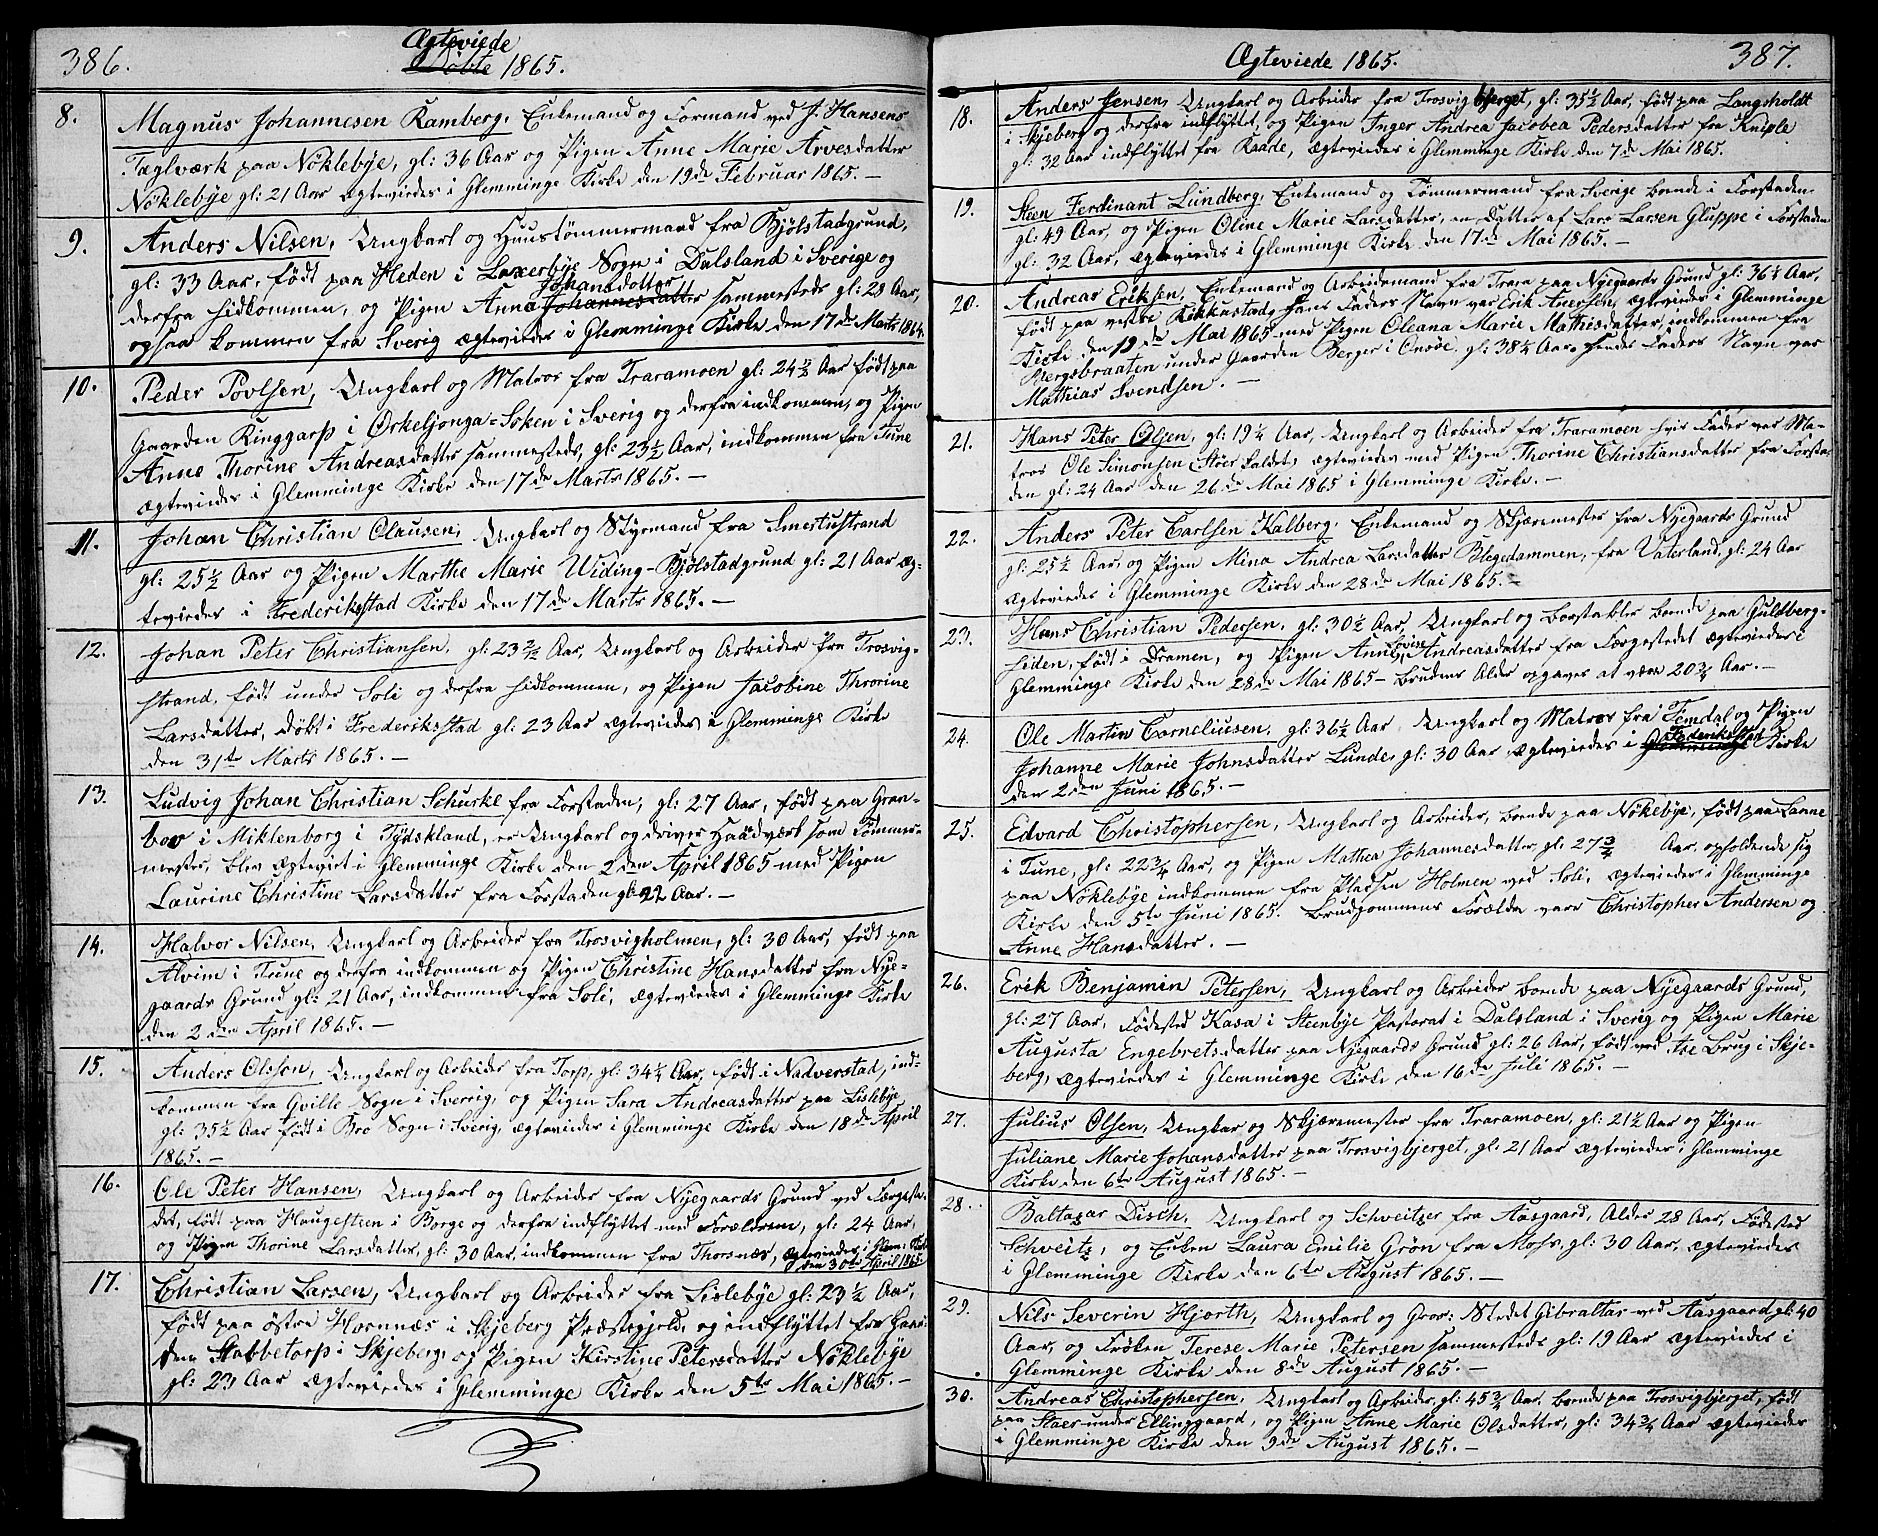 386.
Ægteviede
Døbte 1865.
8.
Magnus Johannesen Ramberg, Enkemand og Formand ved J. Hansens
Tæglværk paa Nöklebye, gl: 36 Aar og Pigen Anne Marie Arvesdatter
Nöklebye gl: 21 Aar Ægteviedes i Glemminge Kirke den 19de Februar 1865. —
9.
Anders Nilsen, Ungkarl og Huustömmermand fra Bjölstadgrund,
gl: 33 Aar, født paa Heden i Laxerbye Sogn i Dalsland i Sverige og
Johansdotter
derfra hidkommen, og Pigen Anna Johannesdatter sammesteds gl: 28 Aar,
ogsaa kommen fra Sverig Ægteviedes i Glemminge Kirke den 17de Marts 1865.
10.
Peder Povlsen, Ungkarl og Matros fra Traramoen gl: 24 1/2 Aar født paa
Gaarden Ringgarp i Ørkeljonga-Soken i Sverig og derfra indkommen, og Pigen
Anne Thorine Andreasdatter sammesteds, gl: 23 1/2 Aar, indkommen fra Tune
Ægteviedes i Glemminge Kirke den 17de Marts 1865. —
11.
Johan Christian Clausen, Ungkarl og Styrmand fra Smertustrand
gl: 25 1/2 Aar og Pigen Marthe Marie Widing - Bjölstadgrund gl: 21 Aar Æg-
teviedes i Frederikstad Kirke den 17de Marts 1865. —
12.
Johan Peter Christiansen, gl: 23 Aar, Ungkarl og Arbeider fra Trosvig-
strand, født under Soli og derfra hidkommen, og Pigen Jacobine Throrine
Larsdatter, døbt i Frederiksstad gl: 23 Aar Ægteviedes i Glemminge Kirke
den 31te Marts 1865. —
13.
Ludvig Johan Christian Schurke fra Forstaden, gl: 27 Aar, født paa Gran-
bov i Miklenborg i Tydskland, er Ungkarl og driver Haandværk som Tömmer-
mester, blev Ægteviet i Glemminge Kirke den 2den April 1865 med Pigen
Laurine Christine Larsdatter fra Forstaden gl: 22 Aar. —
14.
Halvor Nilsen, Ungkarl og Arbeider fra Trosvigholmen, gl: 30 Aar, født paa
Alvim i Tune og derfra indkommen og Pigen Christine Hansdatter fra Nye-
gaards Grund gl: 21 Aar, indkommen fra Soli, Ægteviedes i Glemminge Kirke
den 2den April 1865. —
15.
Anders Olsson, Ungkarl og Arbeider fra Torp, gl: 34 1/4 Aar, født i Nadverstad, ind-
kommen fra Qville Sogn i Sverrig, og Pigen Sara Andreasdatter paa Lislebye
gl: 35 1/2 Aar født i Bro Sogn i Sverig, Ægteviedes i Glemminge Kirke den 18de April
1865. —
16.
Ole Peter Hansen, Ungkarl og Arbeider fra Nyegaards Grund ved Færgesta-
det, født paa Haugesteen i Borge og derfra indflyttet med Forældrene, gl: 24 Aar,
og Pigen Thorine Larsdatter, gl: 30 Aar, indkommen fra Thorsnæs, Ægteviedes i Glem: Kirke
den 30te April 1865
17.
Christian Larsen, Ungkarl og Arbeider fra Lislebye gl: 23 1/2 Aar,
født paa østre Hornnæs i Skjeberg Præstegjeld, og indflyttet fra Gaar-
den Stabbetorp i Skjeberg, og Pigen Kirstine Petersdatter Nöklebye
gl: 23 Aar Ægteviedes i Glemminge Kirke den 5te Mai 1865. —
Ægteviede 1865.
387.
18.
Anders Jensen, Ungkarl og Arbeider fra Trosvigbjerget, gl: 35 1/2 Aar, født paa Langsholdt
i Skjeberg og derfra indflyttet, og Pigen Inger Andrea Jacobea Pedersdatter fra Kniple
gl: 32 Aar indflyttet fra Raade, Ægteviedes i Glemminge Kirke den 7de Mai 1865.
19.
Steen Ferdinant Lundberg, Enkemand og Tömmermand fra Sverige boende i Forstaden
gl: 49 Aar, og Pigen Oline Marie Larsdatter, en Datter af Lars Larsen Gluppe i Forstaden
gl: 32 Aar, Ægteviedes i Glemminge Kirke den 17de Mai 1865. —
20.
Andreas Eriksen, Enkemand og Arbeidsmand fra Trara paa Nyegaards Grund gl: 36 1/4 Aar,
født paa vestre Kikkustad, hans Faders Navn var Erik Anersen, Ægteviedes i Glemminge
Kirke den 19de Mai 1865 med Pigen Oleana Marie Mathisdatter, indkommen fra
Bergsbraaten under Gaarden Berger i Onsöe, gl: 38 1/4 Aar, hendes Faders Navn var
Mathias Svendsen. —
21.
Hans Peter Olsen, gl: 19 1/4 Aar, Ungkarl og Arbeider fra Traramoen hvis Fader var Ma-
tros Ole Simonsen Stöer kaldet, Ægteviedes med Pigen Thorine Christiansdatter fra Forsta-
den gl: 24 Aar den 26de Mai 1865 i Glemminge Kirke. —
22.
Anders Peter Carlsen Kalberg, Enkemand og Skjæremester fra Nyegaards Grund
gl: 25 1/2 Aar, og Pigen Mina Andrea Larsdatter Blegedammen, fra Vaterland, gl: 24 Aar
Ægteviedes i Glemminge Kirke den 28de Mai 1865. —
23.
Hans Christian Pedersen, gl: 30 1/2 Aar, Ungkarl og Bordstabler boende paa Guldberg-
Lovise
siden, født i Dramen, og Pigen Anne Andreasdatter fra Færgestedet Ægteviedes i
Glemminge Kirke den 28de Mai 1865 — Brudens Alder opgaves at være 20 3/4 Aar. —
24.
Ole Martin Corneliusen, gl: 36 1/2 Aar Ungkarl og Matros fra Femdal og Pigen
Frederikstad
Johanne Marie Johnsdatter Lunde, gl: 30 Aar Ægteviedes i Glemminge Kirke
den 2den Juni 1865. —
25.
Edvard Christophersen, Ungkarl og Arbeider, boende paa Nöklebye, født paa Lanne
i Tune, gl: 22 3/4 Aar, og Pigen Mathea Johannesdatter, gl: 27 3/4 Aar, opholdende sig
paa Nöklebye indkommen fra Pladsen Holmen ved Soli, Ægteviedes i Glemminge
Kirke den 5te Juni 1865. Brudgommens Forældre vare Christopher Andersen og
Anne Hansdatter. —
26.
Erik Benjamin Petersen, Ungkarl og Arbeider boende paa Nyegaards Grund,
gl: 27 Aar, Födested Kasa i Steenbye Pastorat i Dalsland i Sverig og Pigen Marie
Augusta Engebretsdatter paa Nyegaards Grund gl: 26 Aar, født ved Ise Brug i Skje-
berg, Ægteviedes i Glemminge Kirke den 16de Juli 1865. —
27.
Julius Olsen, Ungkar og Skjæremester fra Traramoen, gl: 21 1/2 Aar og Pigen
Juliane Marie Johansdatter paa Trosvigbjerget, gl: 21 Aar Ægteviedes i Glemminge
Kirke den 6te August 1865. —
28.
Baltazar Disch, Ungkarl og Schveitzer fra Aasgaard, Alder 28 Aar, Födested
Schveitz, og Enken Laura Emilie Grön fra Moss, gl: 30 Aar, Ægteviedes
i Glemminge Kirke den 6te August 1865. —
29.
Nils Severin Hjorth, Ungkarl og Gros: Stedet Gibraltar ved Aasgaard gl: 40
Aar, og Fröken Terese Marie Petersen sammesteds gl: 19 Aar Ægteviedes i
Glemminge Kirke den 8de August 1865. —
30.
Andreas Christophersen, Ungkarl og Arbeider, gl: 45 3/4 Aar boende paa Trosvigbjerget, født
paa Staer under Ellinggaard, og Pigen Anne Marie Olsdatter, gl: 34 3/4 Aar Ægteviedes
i Glemminge Kirke den 9de August 1865. —